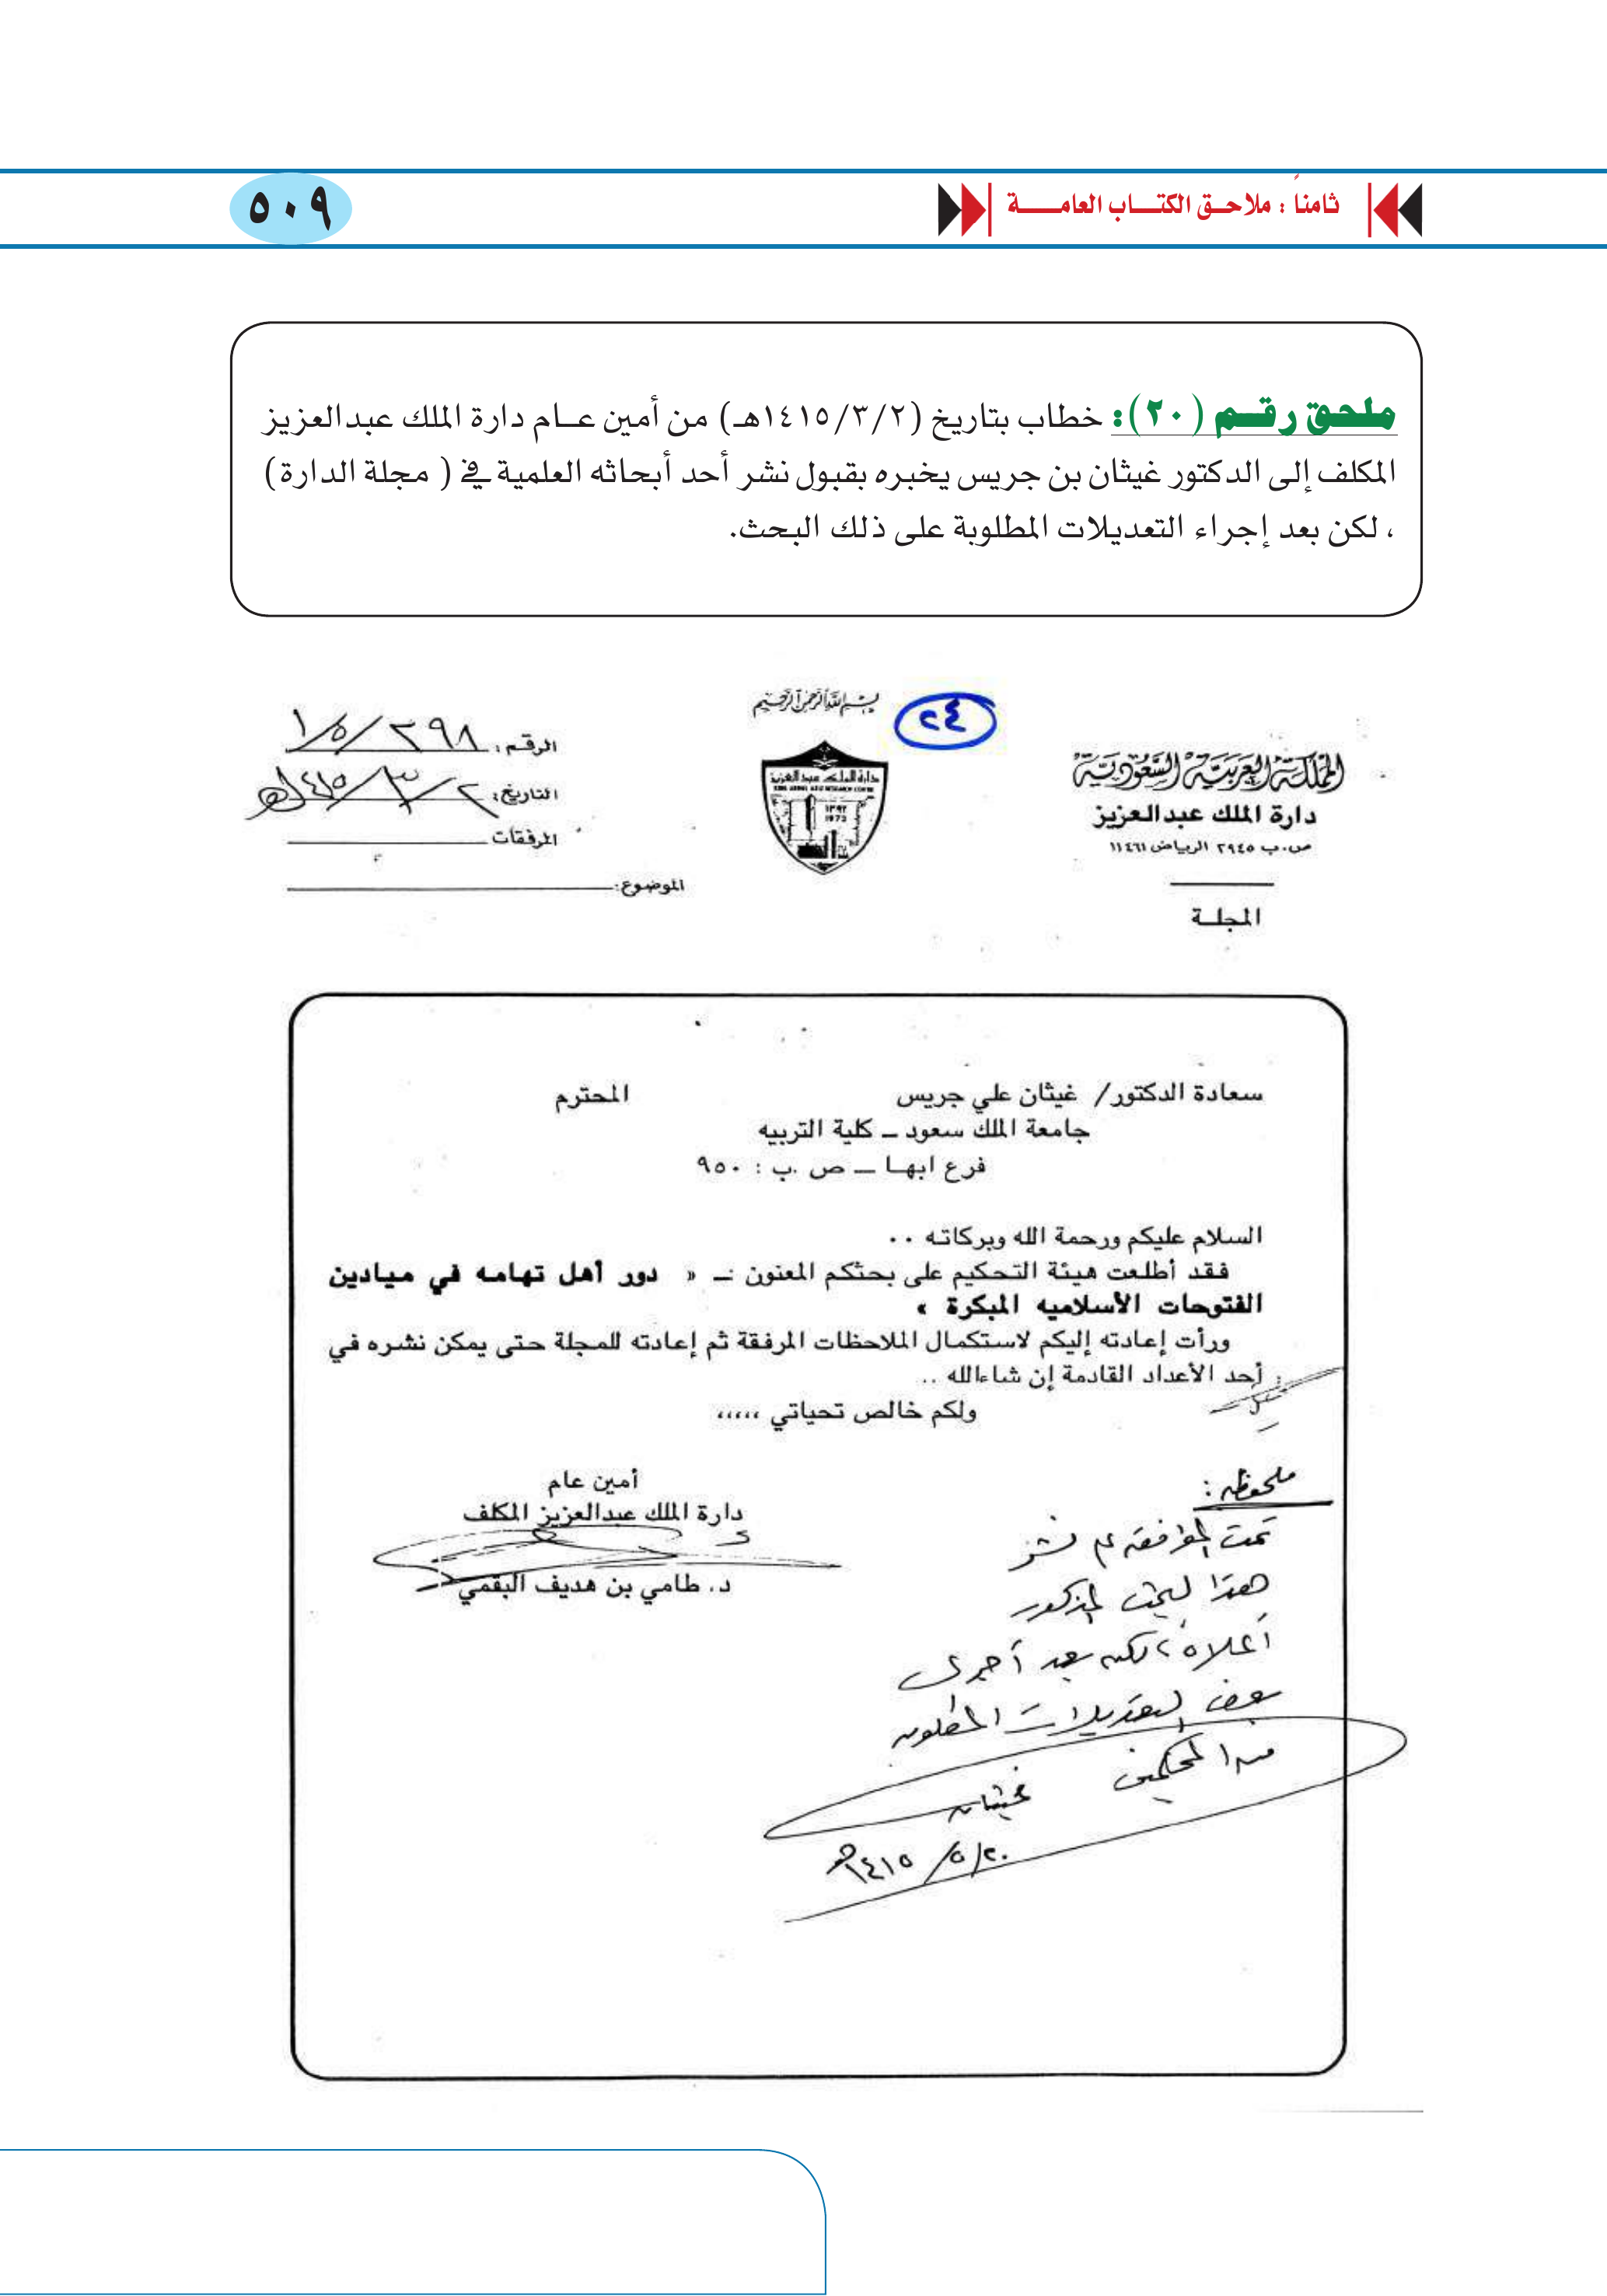 ثامناً : ملاحق الكتاب العامة
٥٠٩
ملحق رقم (٢٠): خطاب بتاريخ (١٤١٥/٣/٢هـ) من أمين عام دارة الملك عبدالعزيز
المكلف إلى الدكتور غيثان بن جريس يخبره بقبول نشر أحد أبحاثه العلمية في ( مجلة الدارة)
، لكن بعد إجراء التعديلات المطلوبة على ذلك البحث.
بسم الله الرحمن الرحيم
٢٤
المملكة العربية السعودية
دارة الملك عبدالعزيز
ص.ب ٢٩٤٥ الرياض ١١٤٦١
المجلة
دارة الملك عبدالعزيز
١٣٩٢
1972
الرقم: ٢٩٨/٥/١
التاريخ: ٢/٣/١٤١٥هـ
المرفقات
الموضوع:
سعادة الدكتور/ غيثان علي جريس المحترم
جامعة الملك سعود ــ كلية التربيه
فرع ابها ــ ص .ب : ٩٥٠
السلام عليكم ورحمة الله وبركاته ..
فقد أطلعت هيئة التحكيم على بحثكم المعنون :ــ « دور أهل تهامه في ميادين
الفتوحات الأسلاميه المبكرة »
ورأت إعادته إليكم لاستكمال الملاحظات المرفقة ثم إعادته للمجلة حتى يمكن نشره في
أحد الأعداد القادمة إن شاءالله ..
ولكم خالص تحياتي ،،،،،
أمين عام
دارة الملك عبدالعزيز المكلف
د. طامي بن هديف البقمي
ملحوظه :
تمت الموافقه على نشر
هذا البحث المذكور
أعلاه، لكن بعد أجرى
بعض التعديلات المطلوبه
من المحكمين
غيثان
٢٠/٥/١٤١٥هـ